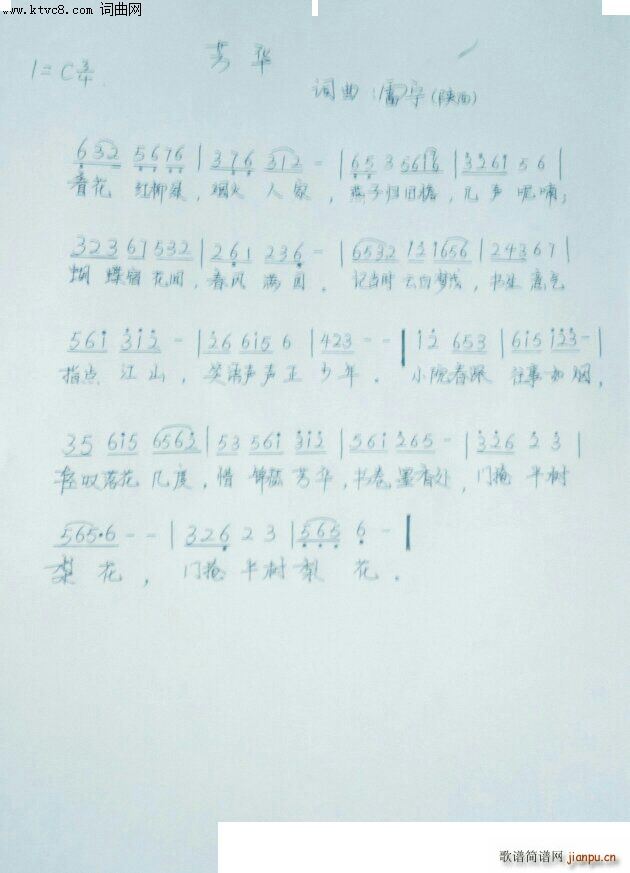 www.ktvc8.com 词曲网
芳华
1=C 3/4
词曲:雷宇(陕西)
6 3 2 5 6 7 6 | 3 7 6 3 1 2 - | 6 5 3 5 6 1 6 | 3 2 6 1 5 6 |
杏花 红柳绿,烟火 人家,燕子归旧檐,几声 呢喃;
3 2 3 6 7 5 3 2 | 2 6 1 2 3 6 - | 6 5 3 2 1 2 1 6 5 6 | 2 4 3 6 7 |
蝴蝶宿花间,春风 满园。记当时 云白 ,书生 意气
5 6 1 3 1 2 - | 2 6 6 1 5 6 | 4 2 3 - - | 1 2 6 5 3 | 6 1 5 1 2 3 - |
指点 江山,笑语声声正 少年。小院春深 往事如烟,
3 5 6 1 5 6 5 6 2 | 5 3 5 6 1 3 1 2 | 5 6 1 2 6 5 - | 3 2 6 2 3 |
轻叹落花 几度,惜 锦 芳华,书卷墨香处,门掩 半树
5 6 5 · 6 - - | 3 2 6 2 3 | 5 6 5 6 - |
梨 花,门掩 半树 梨 花。
歌谱简谱网 jianpu.cn